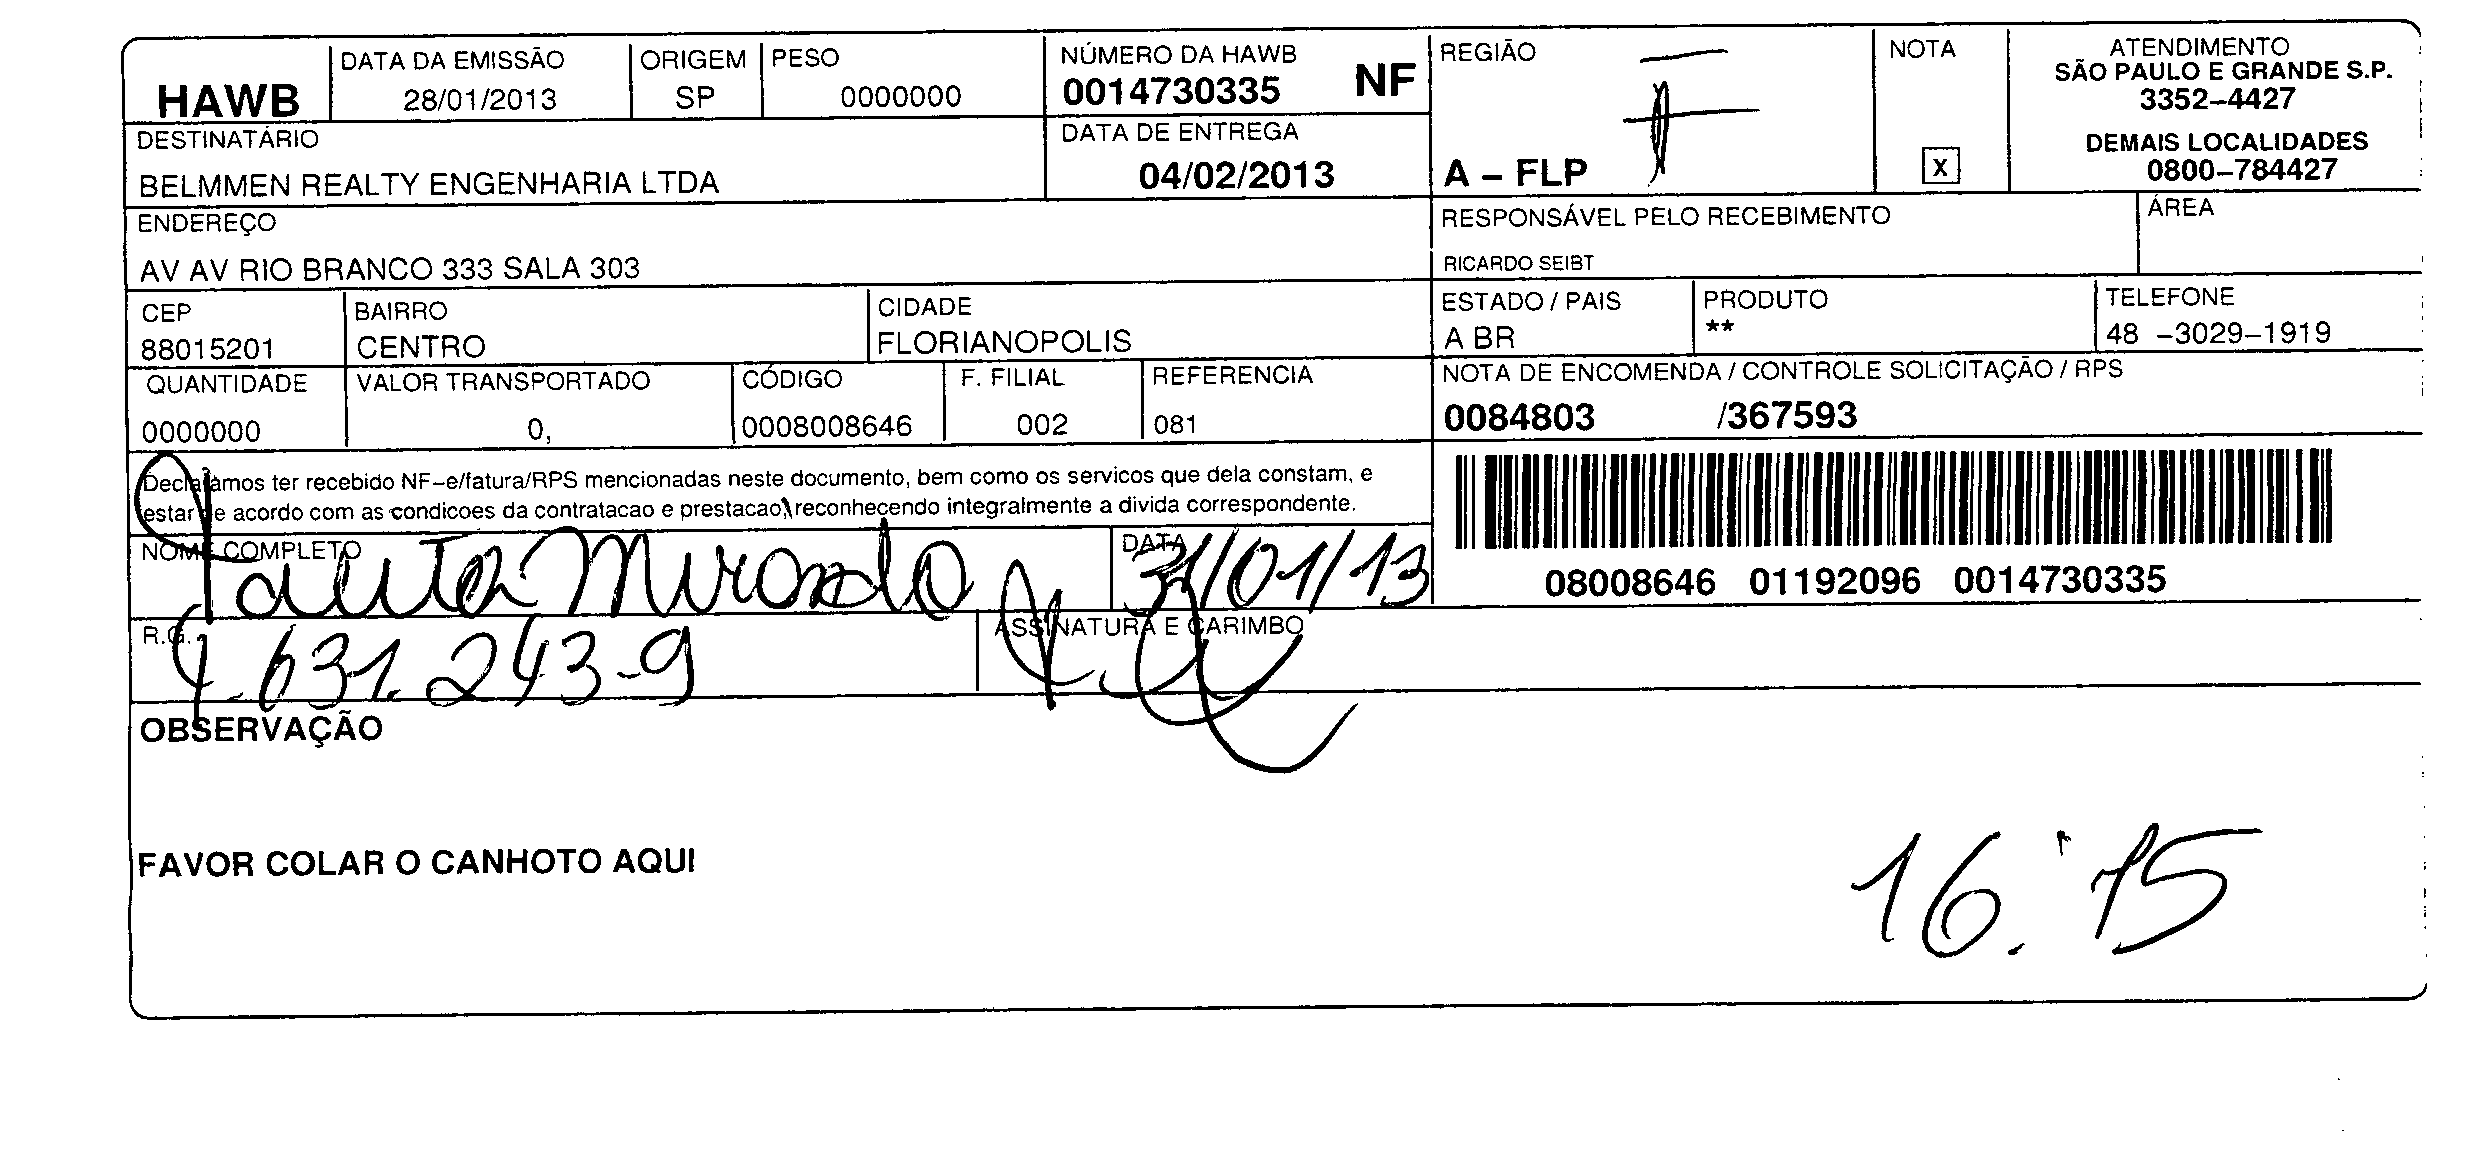 HAWB
DATA DA EMISSÃO
28/01/2013
ORIGEM
SP
PESO
0000000
NÚMERO DA HAWB
0014730335 NF
REGIÃO
A – FLP
NOTA
X
ATENDIMENTO
SÃO PAULO E GRANDE S.P.
3352–4427
DEMAIS LOCALIDADES
0800–784427
DESTINATÁRIO
BELMMEN REALTY ENGENHARIA LTDA
DATA DE ENTREGA
04/02/2013
ENDEREÇO
AV AV RIO BRANCO 333 SALA 303
RESPONSÁVEL PELO RECEBIMENTO
RICARDO SEIBT
ÁREA
CEP
88015201
BAIRRO
CENTRO
CIDADE
FLORIANOPOLIS
ESTADO / PAIS
A BR
PRODUTO
**
TELEFONE
48 –3029–1919
QUANTIDADE
0000000
VALOR TRANSPORTADO
0,
CÓDIGO
0008008646
F. FILIAL
002
REFERENCIA
081
NOTA DE ENCOMENDA / CONTROLE SOLICITAÇÃO / RPS
0084803 /367593
Declaramos ter recebido NF–e/fatura/RPS mencionadas neste documento, bem como os servicos que dela constam, e
estar de acordo com as condicoes da contratacao e prestacao\reconhecendo integralmente a divida correspondente.
08008646 01192096 0014730335
NOME COMPLETO
Miranda
DATA
31/01/13
R.G.
9.631.243-9
ASSINATURA E CARIMBO
OBSERVAÇÃO
FAVOR COLAR O CANHOTO AQUI
16:15